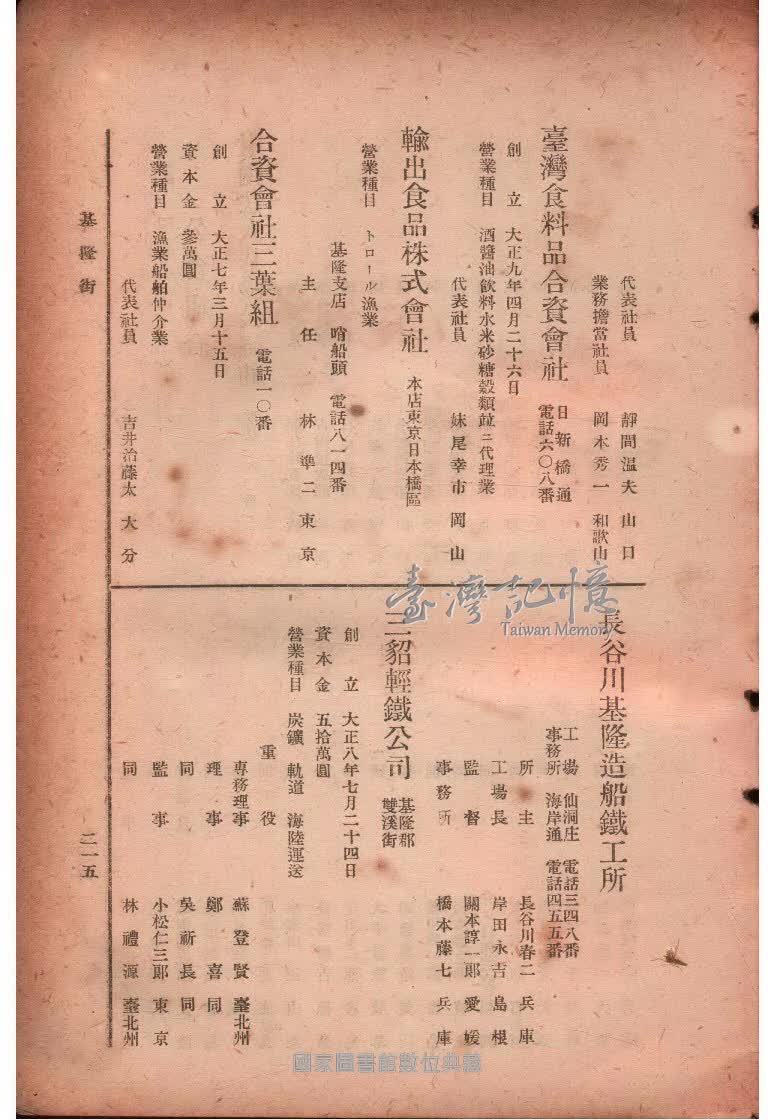 代表社員 靜間溫夫 山口
業務擔當社員 岡本秀一 和歌山
臺灣食料品合資會社 日新橋通
電話六〇八番
創立 大正九年四月二十六日
營業種目 酒醬油飲料水米砂糖穀類竝ニ代理業
代表社員 妹尾幸市 岡山
輸出食品株式會社 本店東京日本橋區
營業種目 トロール漁業
基隆支店 哨船頭 電話八一四番
主任 林準二 東京
合資會社三葉組 電話一〇番
創立 大正七年三月十五日
資本金 參萬圓
營業種目 漁業船舶仲介業
代表社員 吉井治藤太 大分
長谷川基隆造船鐵工所
工場 仙洞庄 電話三四八番
事務所 海岸通 電話四五五番
所主 長谷川春二 兵庫
工場長 岸田永吉 島根
監督 關本諄一郎 愛媛
事務所 橋本藤七 兵庫
三貂輕鐵公司 基隆郡
雙溪街
創立 大正八年七月二十四日
資本金 五拾萬圓
營業種目 炭鑛 軌道 海陸運送
重役
專務理事 蘇登賢 臺北州
理事 鄭喜 同
同 吳祈長 同
監事 小松仁三郎 東京
同 林禮源 臺北州
基隆街
二一五
臺灣記憶
Taiwan Memory
國家圖書館數位典藏